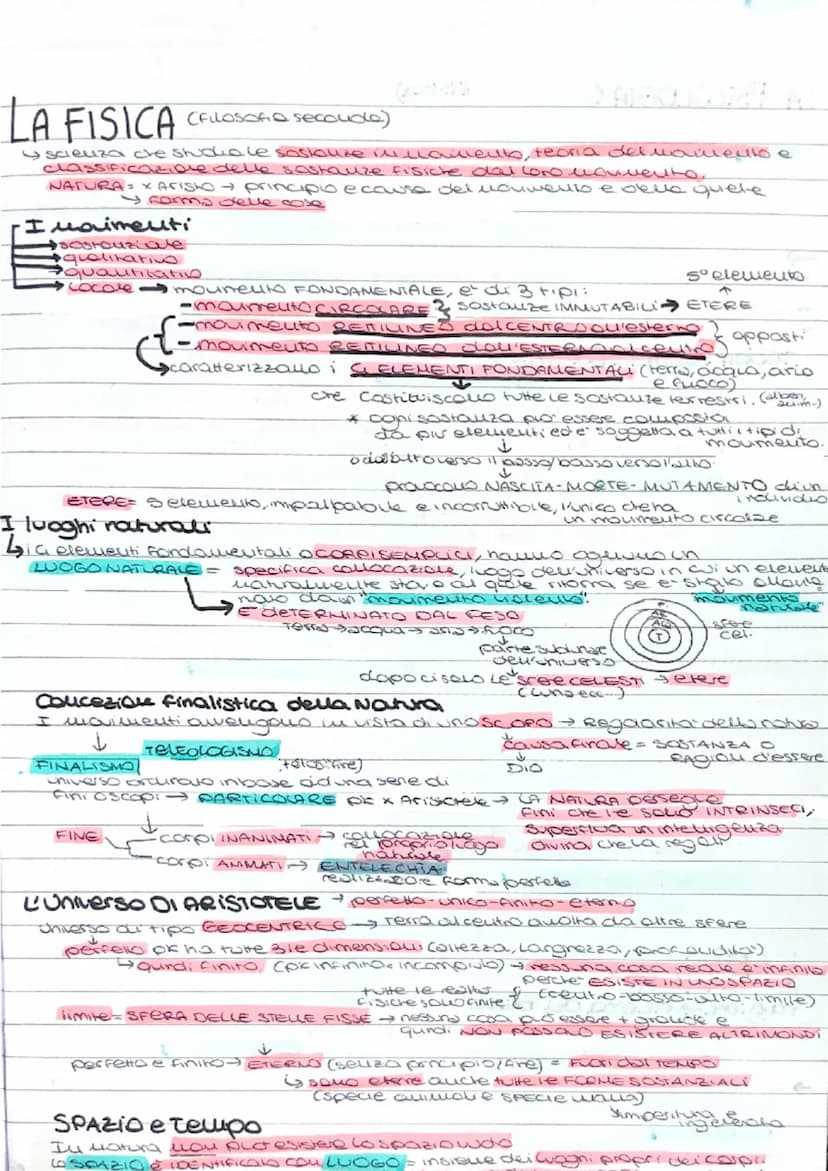 LA FISICA (filosofia seconda)
↳ scienza che studia le sostanze in movimento, teoria del movimento e
classificazione delle sostanze fisiche dal loro movimento.
NATURA = x Aristo → principio e causa del movimento e della quiete
↳ forma delle cose
I movimenti
→ sostanziale
→ qualitativo
→ quantitativo
→ locale → movimento FONDAMENTALE, e' di 3 tipi:
5° elemento
- movimento CIRCOLARE } SOSTANZE IMMUTABILI → ETERE
- movimento RETTILINEO dal CENTRO all'esterno
- movimento RETTILINEO dall'ESTERNO al centro } opposti
caratterizzano i 4 ELEMENTI FONDAMENTALI (terra, acqua, aria
e fuoco)
che costituiscono tutte le sostanze terrestri.
* ogni sostanza può essere composta
da più elementi ed e' soggetta a tutti i tipi di
movimento.
o dall'alto verso il basso/basso verso l'alto
provocano NASCITA-MORTE-MUTAMENTO di un
individuo
ETERE = 5 elemento, impalpabile e incorruttibile, l'unico che ha
un movimento circolare
I luoghi naturali
↳ i 4 elementi fondamentali o CORPI SEMPLICI, hanno ognuno un
LUOGO NATURALE = specifica collocazione, luogo dell'universo in cui un element
naturalmente sta o al quale ritorna se e' stato allonta
nato da un "movimento violento".
"movimento naturale"
E' DETERMINATO DAL PESO
Terra → acqua → aria → fuoco
F
AR
AQ
T
sfere
cel.
parte sublunare
dell'universo
dopo ci sono LE SFERE CELESTI → etere
(luna ecc..)
Concezione finalistica della Natura
I movimenti avvengono in vista di uno SCOPO → Regolarità della natura
TELEOLOGISMO
causa finale = SOSTANZA O
RAGION d'essere
DIO
FINALISMO
(telos: fine)
universo ordinato in base ad una serie di
fini o scopi → PARTICOLARE pk x Aristotele → LA NATURA PERSEGUE
fini che le sono INTRINSECI,
superflua un intelligenza
divina che la regoli
FINE
corpi INANIMATI → collocazione
nel proprio luogo
naturale
corpi ANIMATI → ENTELECHIA:
realizzazione forma perfetta
L'UNIVERSO DI ARISTOTELE → perfetto-unico-finito-eterno
universo di tipo GEOCENTRICO → Terra al centro avvolta da altre sfere
perfetto pk ha tutte 3 le dimensioni (altezza, larghezza, profondità)
↳ quindi finito (pk infinito = incompiuto) → nessuna cosa reale e' infinita
perche' ESISTE IN UNO SPAZIO
tutte le realtà
fisiche sono finite
(centro-basso-alto-limite)
limite = SFERA DELLE STELLE FISSE → nessuna cosa può essere + grande e
quindi NON POSSONO ESISTERE ALTRI MONDI
perfetto e finito → ETERNO (senza principio/fine) = FUORI dal TEMPO
↳ sono eterne anche tutte le FORME SOSTANZIALI
(specie animale e specie umana)
*imperitura e
ingenerata
SPAZIO e TEMPO
In natura non può esistere lo spazio vuoto
LO SPAZIO e' IDENTIFICATO con LUOGO = insieme dei luoghi propri dei corpi.